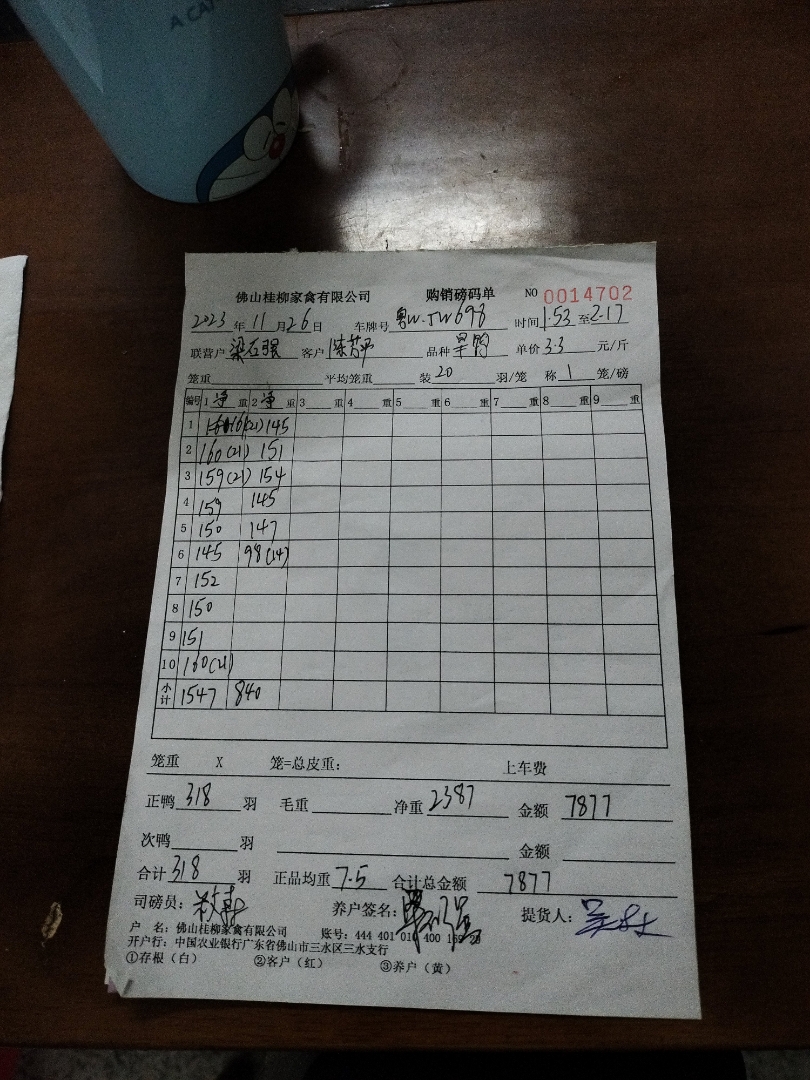 A.CAT
佛山桂柳家禽有限公司 购销磅码单 NO 0014702
2023年11月26日 车牌号 粤W·JW698 时间1·53至2·17
联营户 客户 品种 单价3.3元/斤
笼重 平均笼重 装20羽/笼 称1笼/磅
编号 1净重 2净重 3重 4重 5重 6重 7重 8重 9重
1 161(21) 145
2 160(21) 151
3 159(21) 154
4 159 145
5 150 147
6 145 98(14)
7 152
8 150
9 151
10 160(21)
小计 1547 840
笼重 X 笼=总皮重: 上车费
正鸭318羽 毛重 净重2387 金额7877
次鸭 羽 金额
合计318羽 正品均重7.5 合计总金额7877
司磅员: 养户签名: 提货人:
户 名: 佛山桂柳家禽有限公司 账号: 444 401 010 400
开户行: 中国农业银行广东省佛山市三水区三水支行
①存根(白) ②客户(红) ③养户(黄)